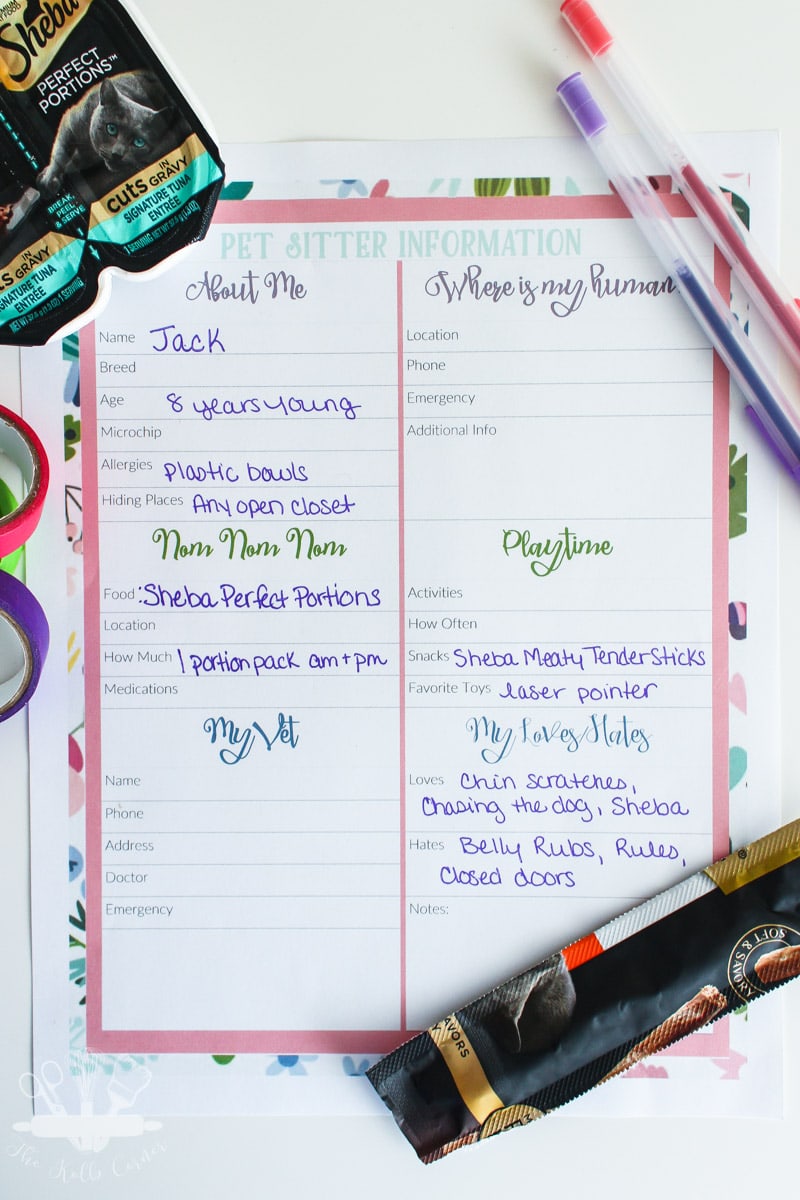 PREMIUM
CAT FOOD
Sheba
PERFECT
PORTIONS™
BREAK,
PEEL,
& SERVE
CUTS IN GRAVY
SIGNATURE TUNA
ENTRÉE
IN GRAVY
SIGNATURE TUNA
ENTRÉE
PET SITTER INFORMATION
About Me
Name Jack
Breed
Age 8 years young
Microchip
Allergies Plastic bowls
Hiding Places Any open closet
Nom Nom Nom
Food :Sheba Perfect Portions
Location
How Much 1 portion pack am + pm
Medications
My Vet
Name
Phone
Address
Doctor
Emergency
Where is my human
Location
Phone
Emergency
Additional Info
Playtime
Activities
How Often
Snacks Sheba Meaty Tender Sticks
Favorite Toys laser pointer
My Loves/Hates
Loves Chin scratches,
Chasing the dog, Sheba
Hates Belly Rubs, Rules,
Closed doors
Notes:
SOFT & SAVORY
The Kolb Corner